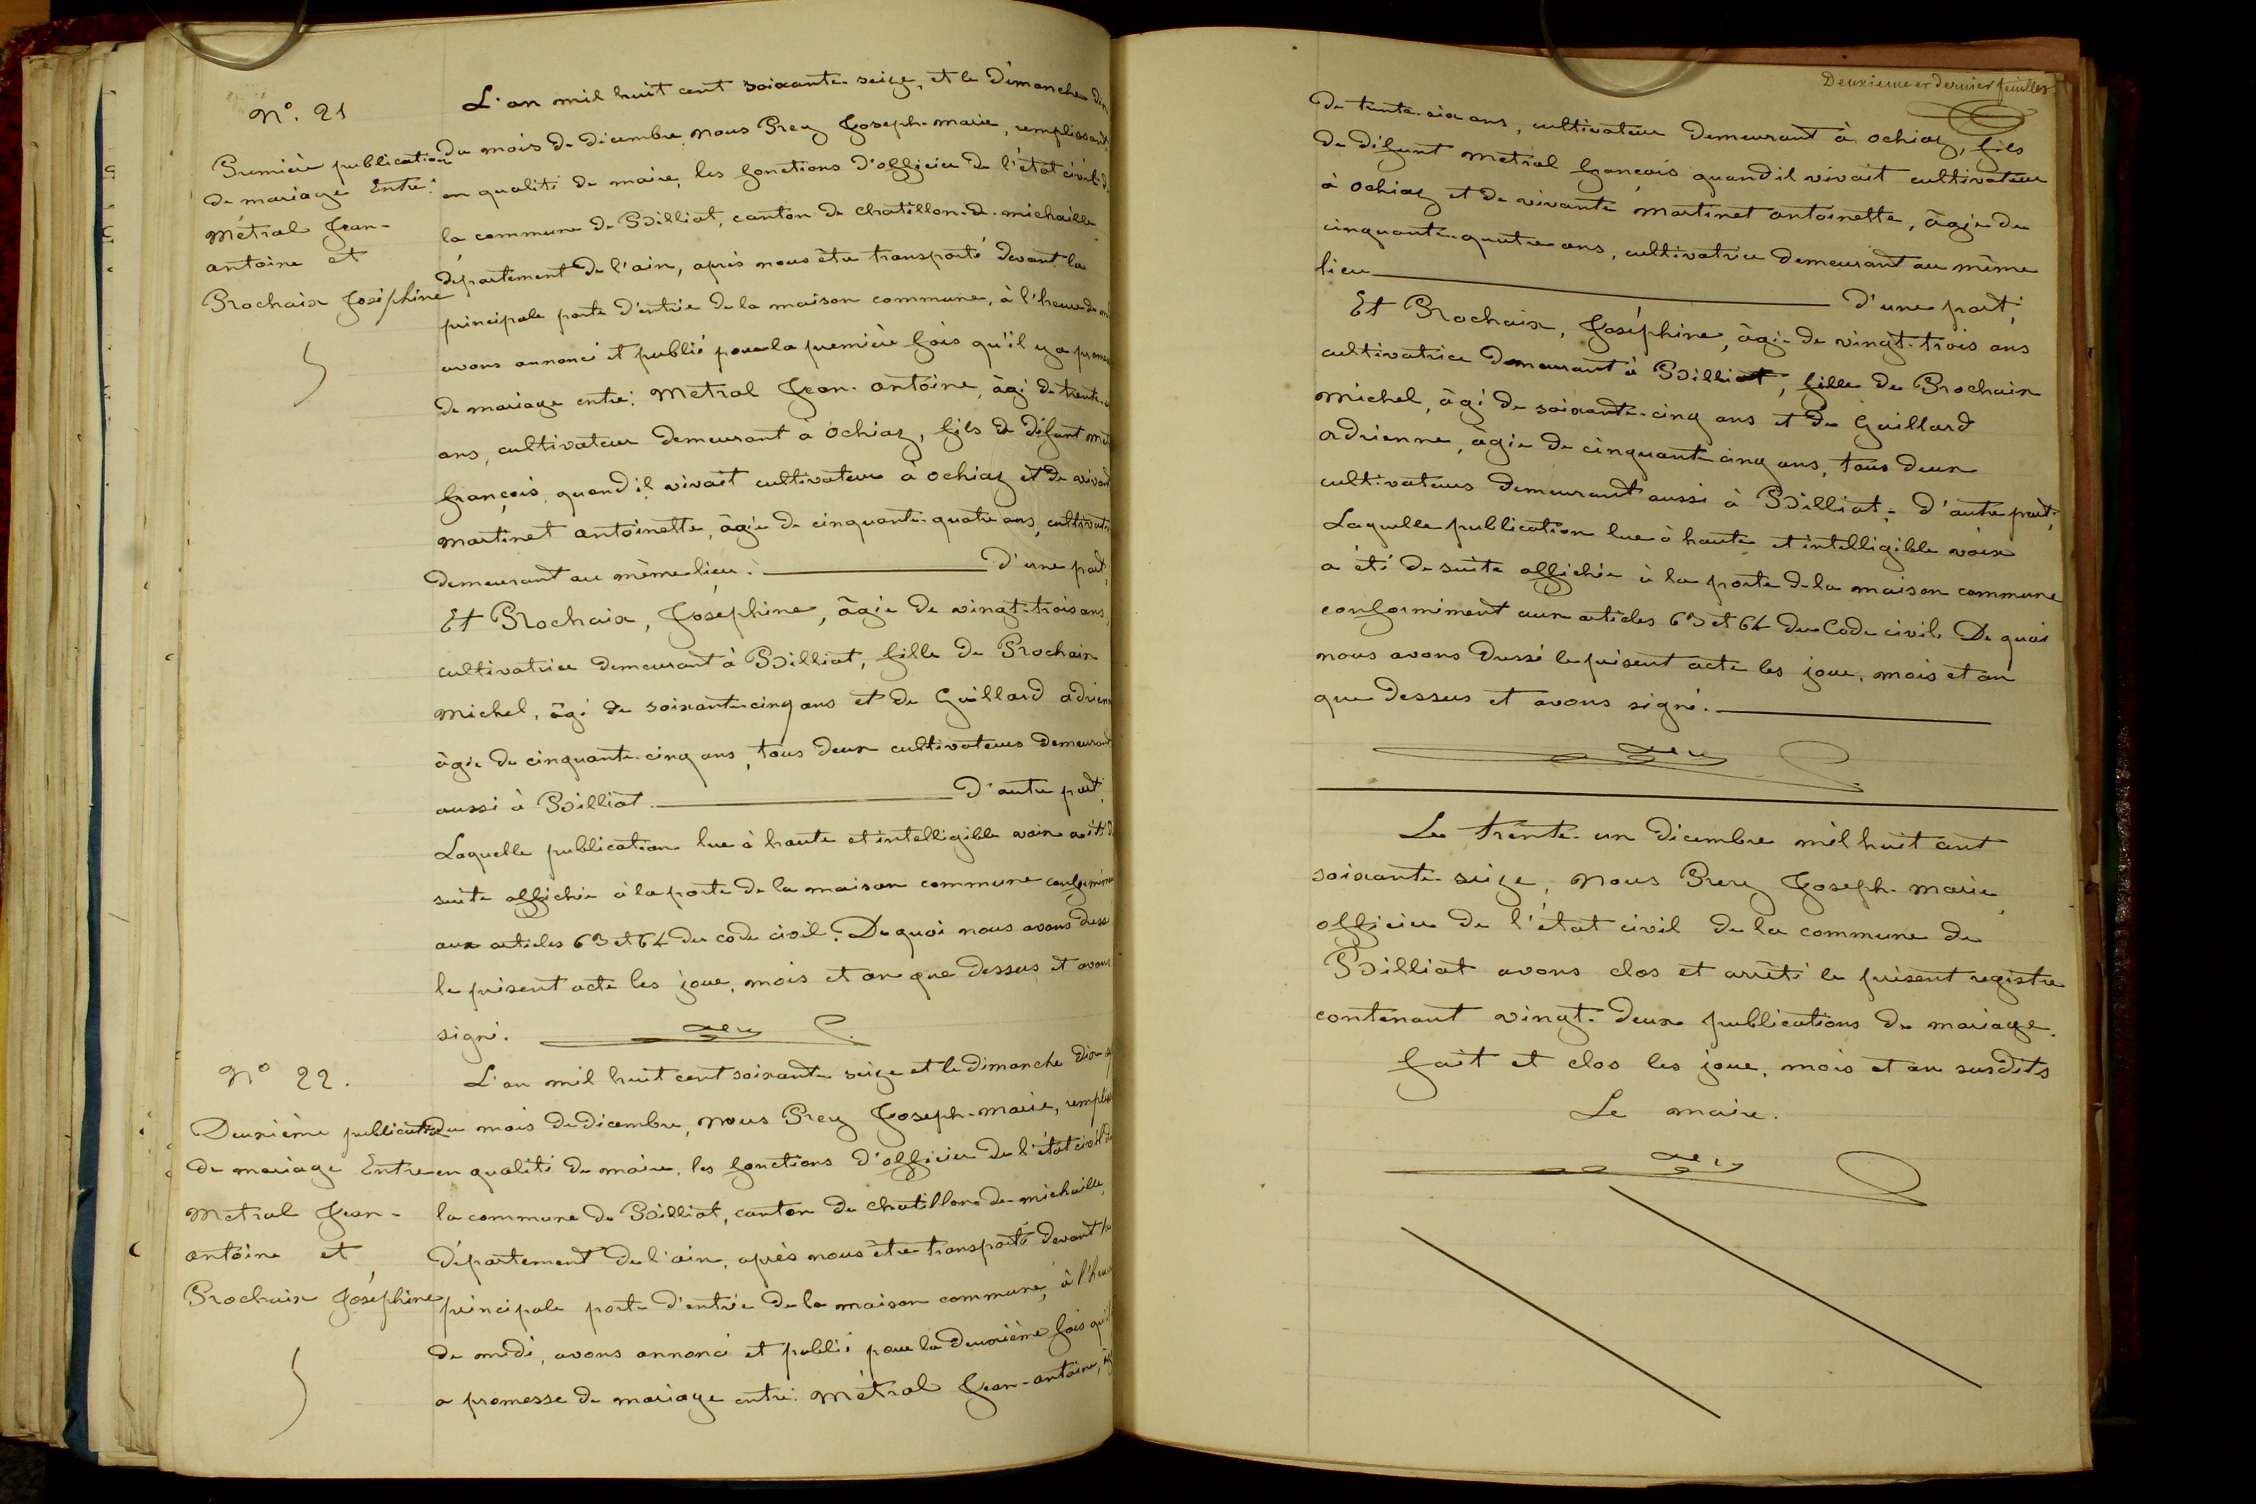 N°. 21
Première publication
de mariage Entre:
Métral Jean-
antoine et
Prochaix Joséphine
L'an mil huit cent soixante-seize, et le dimanche dix
du mois de décembre, nous Prery Joseph-marie, remplissant
en qualité de maire, les fonctions d'officier de l'état civil de
la commune de Billiat, canton de chatillon-de-michaille
département de l'ain, après nous être transporté devant la
principale porte d'entrée de la maison commune, à l'heure de
avons annoncé et publié pour la première fois qu'il y a
de mariage entre: Metral Jean-antoine, âgé de trente
ans, cultivateur demeurant à Ochiaz, fils de défunt
françois, quand il vivait cultivateur à ochiaz et de
martinet antoinette, âgée de cinquante-quatre ans,
demeurant au même lieu. d'une part,
Et Prochaix, Joséphine, âgée de vingt-trois ans,
cultivatrice demeurant à Billiat, fille de Prochaix
Michel, âgé de soixante-cinq ans et de Guillard
âgée de cinquante-cinq ans, tous deux cultivateurs demeurant
aussi à Billiat. d'autre part,
Laquelle publication lue à haute et intelligible voix a été
suite affichée à la porte de la maison commune
aux articles 63 et 64 du code civil. De quoi nous avons
le présent acte les jour, mois et an que dessus et avons
signé.
N° 22.
Deuxième publication
de mariage Entre
Metral Jean-
antoine et
Prochaix Joséphine
L'an mil huit cent soixante seize et le dimanche
du mois de décembre, nous Prery Joseph-marie,
en qualité de maire, les fonctions d'officier de l'état civil de
la commune de Billiat, canton de chatillon-de-michaille,
département de l'ain, après nous être transporté devant la
principale porte d'entrée de la maison commune, à l'heure
de midi, avons annoncé et publié pour la deuxième fois
a promesse de mariage entre: Métral Jean-antoine,
Deuxième et dernier feuillet.
de trente-six ans, cultivateur demeurant à ochiaz, fils
de défunt metral françois quand il vivait cultivateur
à ochiaz et de vivante martinet antoinette, âgée de
cinquante-quatre ans, cultivatrice demeurant au même
lieu d'une part,
Et Prochaix, Joséphine, âgée de vingt-trois ans
cultivatrice demeurant à Billiat, fille de Prochaix
Michel, âgé de soixante-cinq ans et de Guillard
adrienne, âgée de cinquante cinq ans, tous deux
cultivateurs demeurant aussi à Billiat. d'autre part,
Laquelle publication lue à haute et intelligible voix
a été de suite affichée à la porte de la maison commune
conformément aux articles 63 et 64 du Code civil. De quoi
nous avons dressé le présent acte les jour, mois et an
que dessus et avons signé.
Le trente-un décembre mil huit cent
soixante-seize, nous Prery Joseph-marie,
officier de l'état civil de la commune de
Billiat avons clos et arrêté le présent registre
contenant vingt-deux publications de mariage.
fait et clos les jour, mois et an susdits
Le maire.